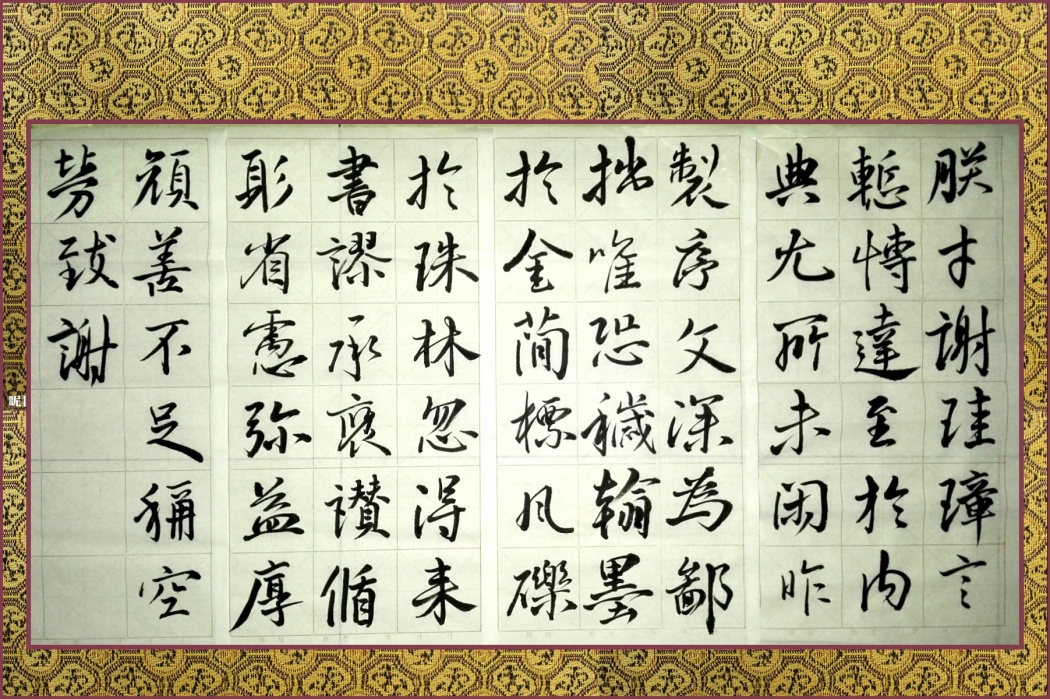 朕才謝珪璋言
慙博達至於内
典尤所未閑昨
製序文深為鄙
拙唯恐穢翰墨
於金簡標瓦礫
於珠林忽得来
書謬承褒讚循
躬省慮弥益厚
顏善不足稱空
勞致謝